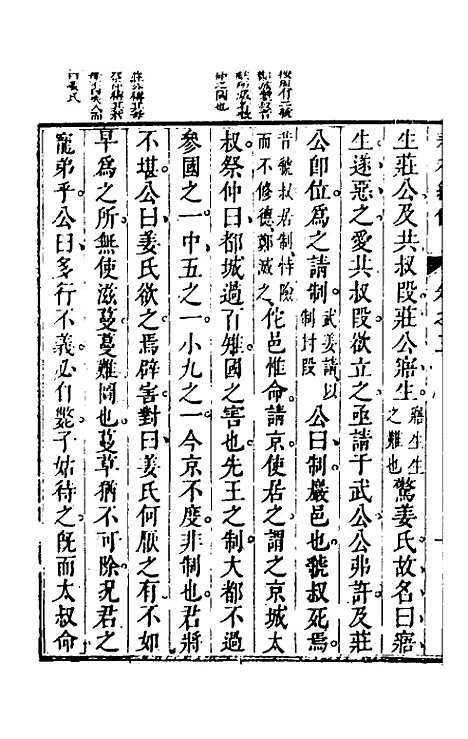 生莊公及共叔段莊公寤生寤生生之難也驚姜氏故名曰寤
生遂惡之愛共叔段欲立之亟請于武公公弗許及莊
公卽位爲之請制武姜請以制封段公曰制巖邑也虢叔死焉
昔虢叔居制恃險而不修德鄭滅之佗邑惟命請京使居之謂之京城太
叔祭仲曰都城過百雉國之害也先王之制大都不過
參國之一中五之一小九之一今京不度非制也君將
不堪公曰姜氏欲之焉辟害對曰姜氏何厭之有不如
早爲之所無使滋蔓蔓難圖也蔓草猶不可除況君之
寵弟乎公曰多行不義必自斃子姑待之旣而太叔命